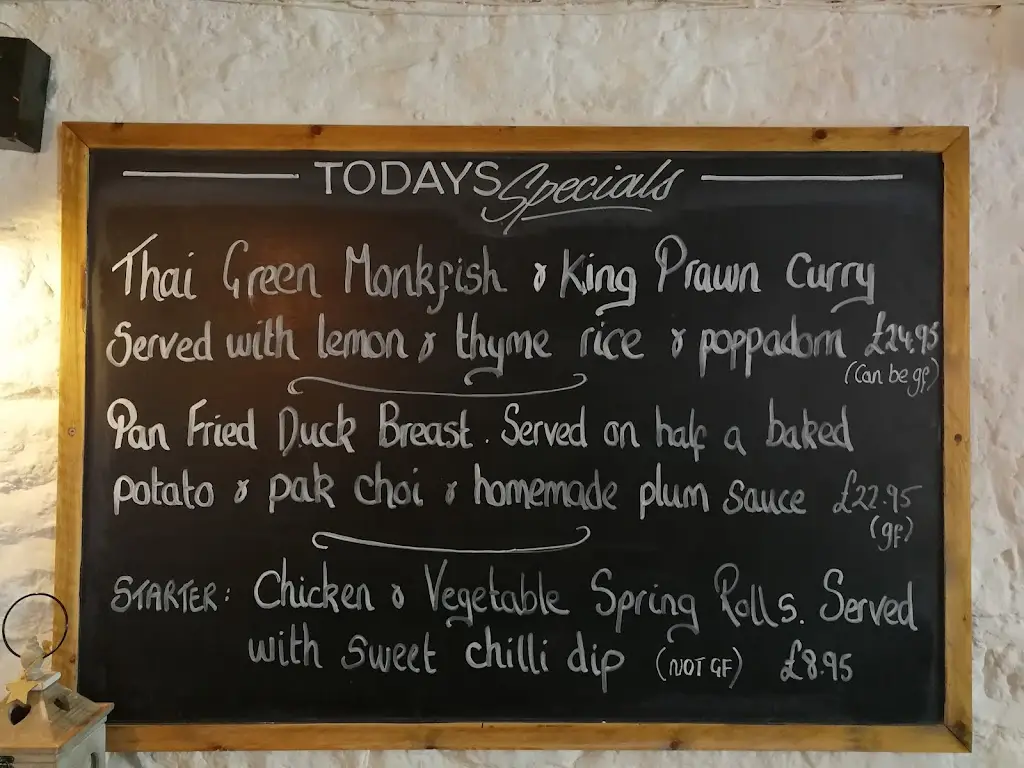 TODAYS Specials
Thai Green Monkfish & King Prawn Curry
Served with lemon & thyme rice & poppadom £24.95
(Can be gf)
Pan Fried Duck Breast. Served on half a baked
potato & pak choi & homemade plum sauce £22.95
(gf)
STARTER: Chicken & Vegetable Spring Rolls. Served
with sweet chilli dip (NOT GF) £8.95